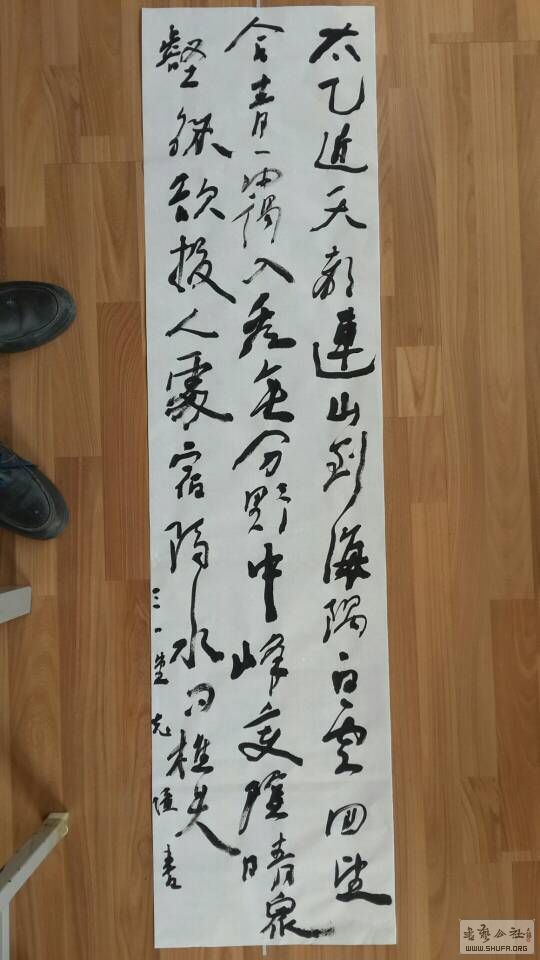 太乙近天都連山到海隅白雲回望
合青靄入看無分野中峰变陰晴衆
壑殊欲投人處宿隔水问樵夫
三一堂克書
书艺公社
WWW.SHUFA.ORG